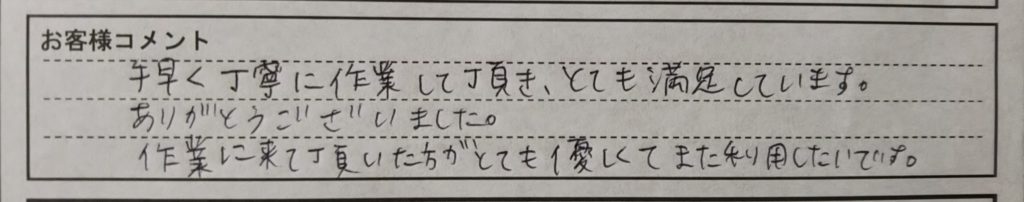 お客様コメント
手早く丁寧に作業して頂き、とても満足しています。
ありがとうございました。
作業に来て頂いた方がとても優しくてまた利用したいです。